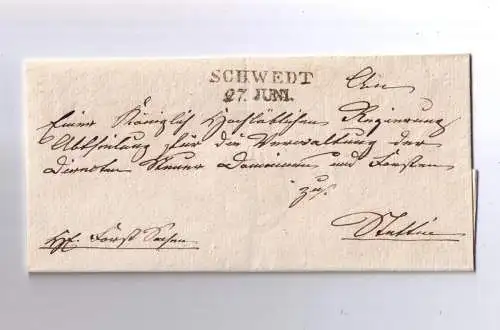 SCHWEDT
27. JUNI.
An
Einer Königlich Hochlöblichen Regierung
Abtheilung für die Verwaltung der
Directen Steuer Domainen und Forsten
zu
Stettin
Forst Sachen